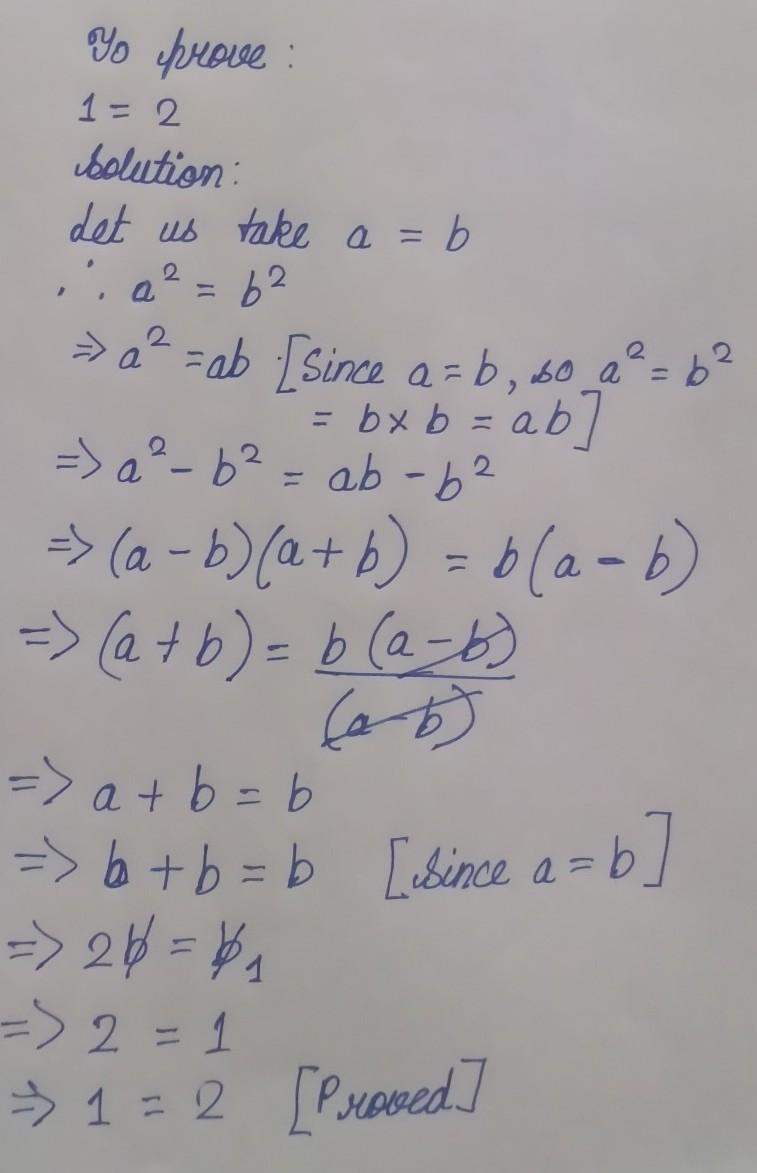 To prove :
1 = 2
Solution:
Let us take a = b
∴ a² = b²
=> a² = ab [Since a = b, so a² = b²
= b × b = ab]
=> a² - b² = ab - b²
=> (a - b)(a + b) = b(a - b)
=> (a + b) = b (a - b)
(a - b)
=> a + b = b
=> b + b = b [Since a = b]
=> 2b = b 1
=> 2 = 1
=> 1 = 2 [Proved]